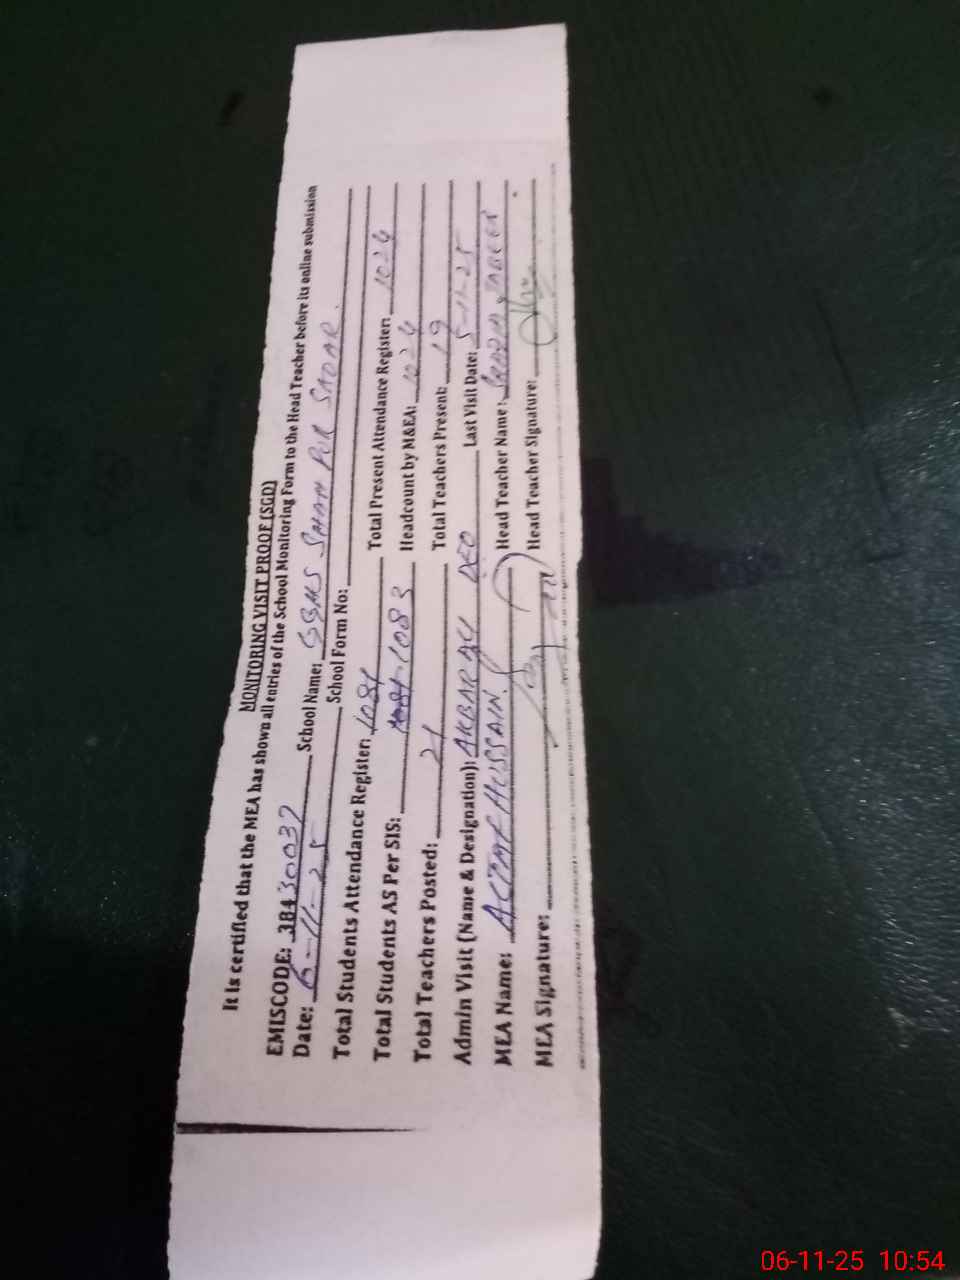 MONITORING VISIT PROOF (SGD)
It is certified that the MEA has shown all entries of the School Monitoring Form to the Head Teacher before its online submission
EMISCODE: 38430037 School Name: GGHS SHAH PUR SADAR.
Date: 6-11-25 School Form No:
Total Students Attendance Register: 1081 Total Present Attendance Register: 1026
Total Students AS Per SIS: 1083 Headcount by M&EA: 1026
Total Teachers Posted: 21 Total Teachers Present: 19
Admin Visit (Name & Designation): AKBAR ALI DEO Last Visit Date: 5-11-25
MEA Name: HUSSAIN Head Teacher Name:
MEA Signature: Head Teacher Signature:
06-11-25 10:54